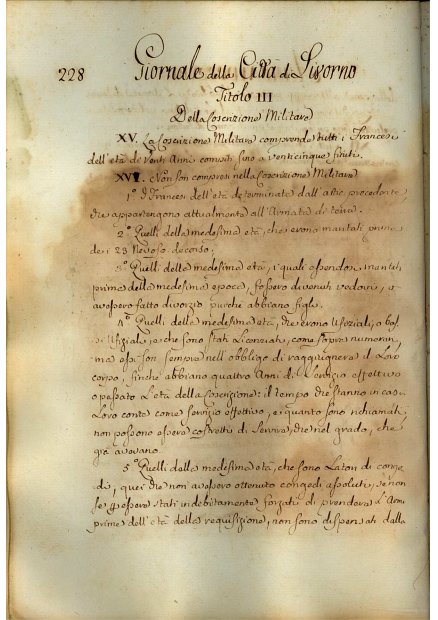 228
Giornale della Città di Livorno
Titolo III
Della Coscrizione Militare
XV. La Coscrizione Militare comprende tutti i Francesi
dell'età de venti Anni compiti sino a venticinque finiti.
XVI. Non son compresi nella Coscrizione Militare
1.° I Francesi dell'età determinata dall'artic. precedente
che appartengono attualmente all'Armata di terra.
2.° Quelli della medesima età, che erono maritati prima
de i 23 Nevoso decorso.
3.° Quelli della medesima età, i quali essendo maritati
prima della medesima epoca, fossero divenuti vedovi, o
avessero fatto divorzio purché abbiano figli.
4.° Quelli della medesima età, che erono Uffiziali, o bas-
si Uffiziali, e che sono stati Licenziati, come sopra
ma essi son sempre nell'obbligo di raggiugnere il Loro
corpo, finché abbiano quattro Anni di Servizio effettivo
o passato L'età della Coscrizione: il tempo che stanno in casa
Loro conta come servizio effettivo, e quanto sono richiamati
non possono essere costretti di Servire, che nel grado, che
già avevano.
5.° Quelli della medesima età, che sono Latori di conge-
di, quei che non avessero ottenuto congedi assoluti, se non
stati indebitamente forzati di prendere L'Armi
prima dell'età della requisizione, non sono dispensati dalla